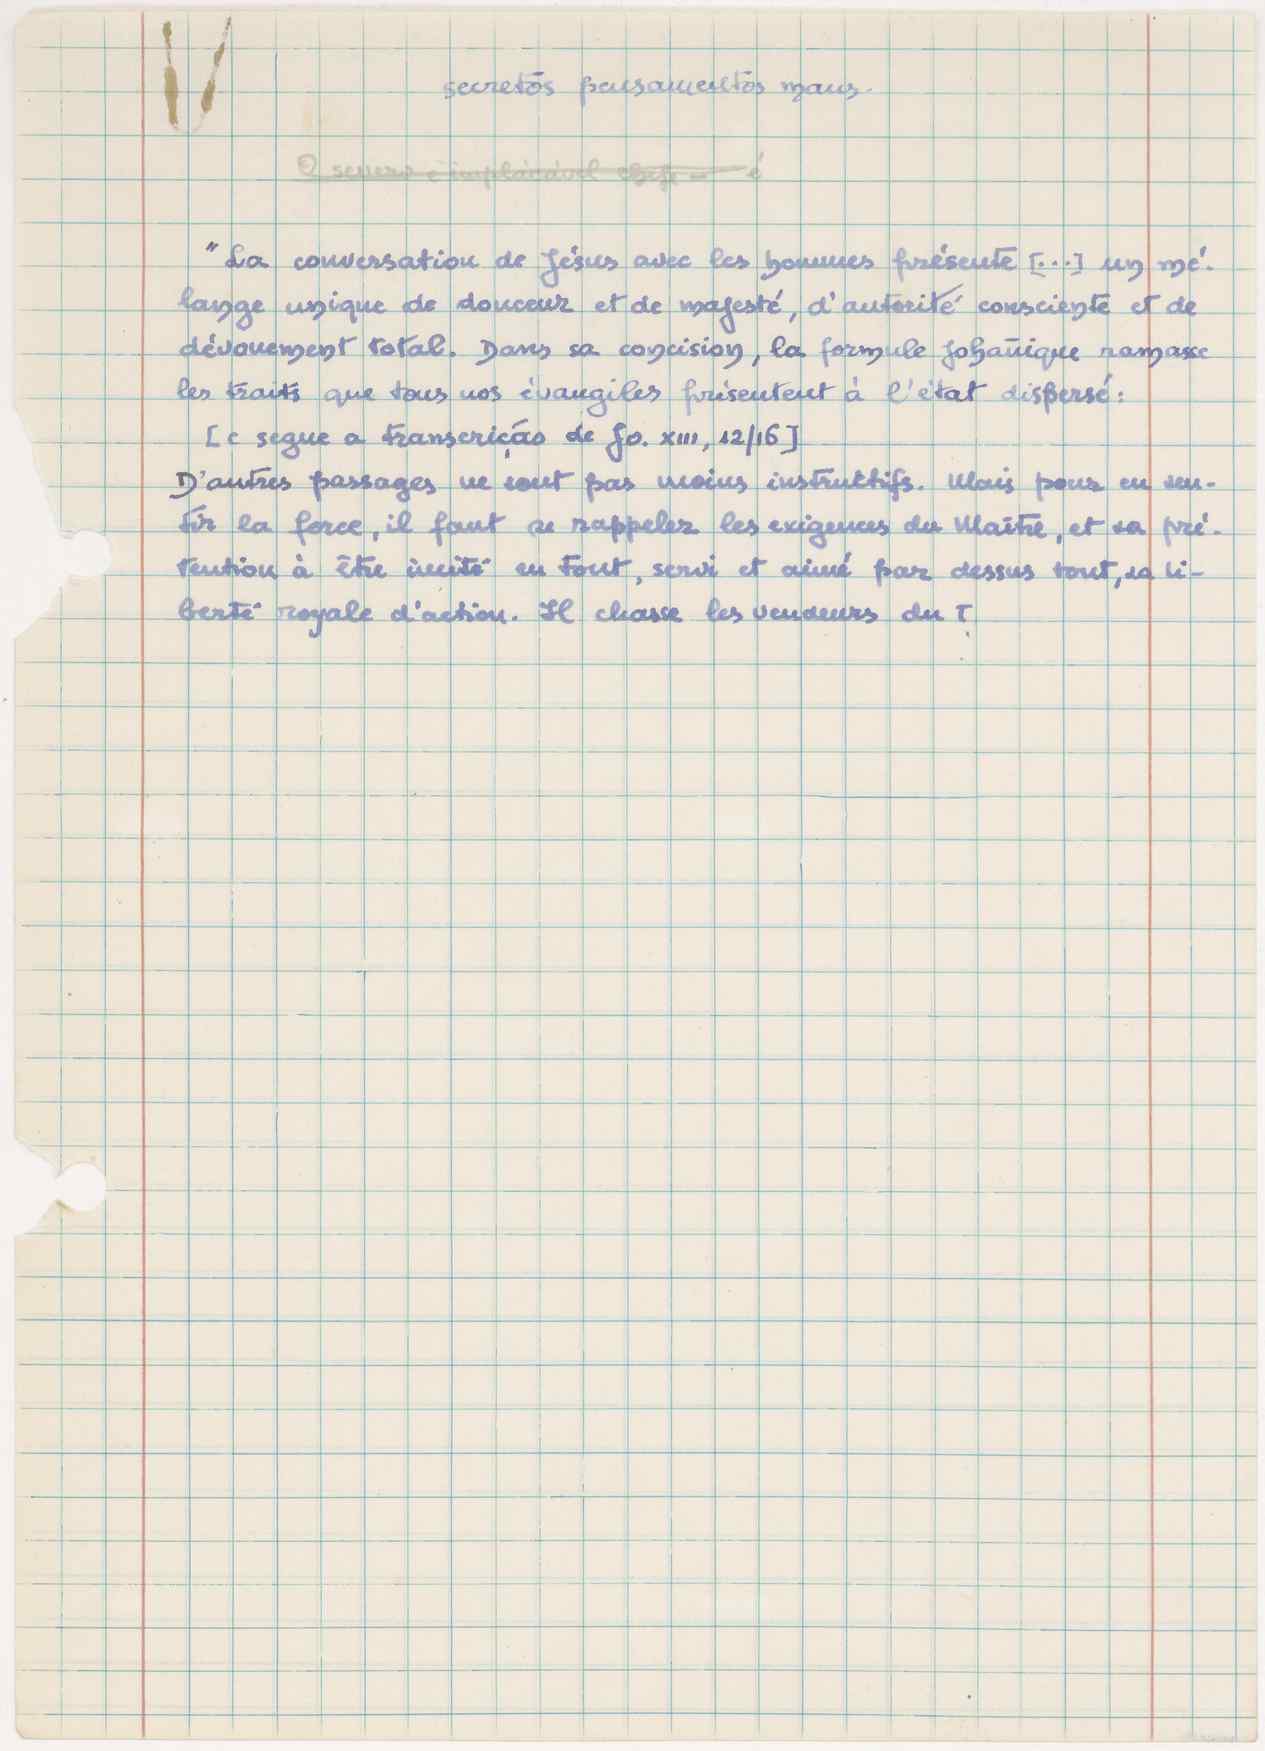 secretos pensamentos maus.
O severo e implacável chefe — é
"La conversation de Jésus avec les hommes présente [...] un mé-
lange unique de douceur et de majesté, d'autorité consciente et de
dévouement total. Dans sa concision, la formule johannique ramasse
les traits que tous nos évangiles présentent à l'état dispersé:
[e segue a transcrição de Jo. XIII, 12/16]
D'autres passages ne sont pas moins instructifs. Mais pour en sen-
tir la force, il faut se rappeler les exigences du Maître, et sa pré-
tention à être imité en tout, servi et aimé par dessus tout, sa li-
berté royale d'action. Il chasse les vendeurs du T